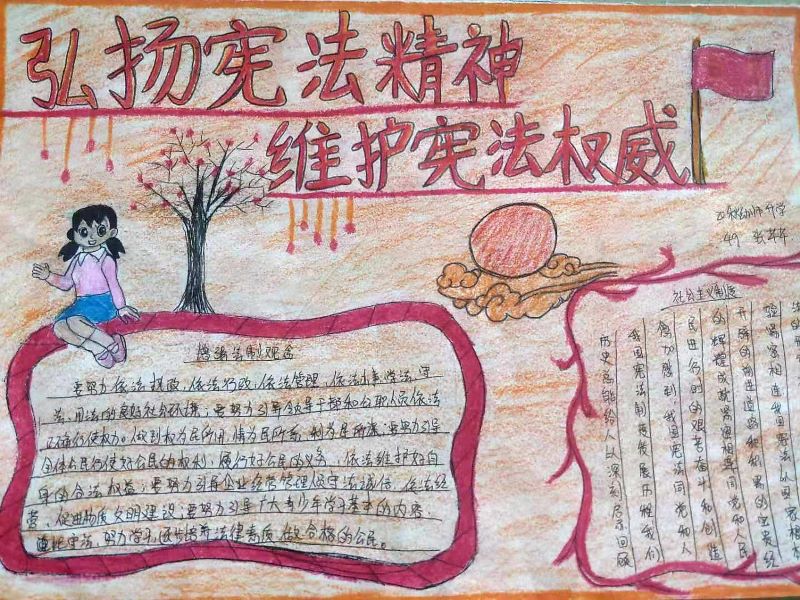 弘扬宪法精神
维护宪法权威
49
增强法制观念
要努力依法执政,依法行政,依法管理,依法办事,学法守
法、用法的良好社会环境;要努力引导领导干部和公职人员依法
正确行使权力。做到权为民所用,情为民所系,利为民所谋;要努力引导
团体公民行使好公民的权利,履行好公民的义务,依法维护好自
身的合法权益;要努力引导企业经营管理促守法诚信,依法经
营,促进物质文明建设;要努力引导广大青少年学习基本的内容,
遵纪守法,努力学习,逐步培养法律素质,做合格的公民。
社会主义制度
紧紧相连我国宪法以国家
开辟的前进道路和积累的宝贵经
的辉煌成就贯通相连同党和人民
民进行的艰苦奋斗和创造
加感到,我国宪法同党和人
我国宪法制度发展历程我们
历史总能给人以深刻启示回顾